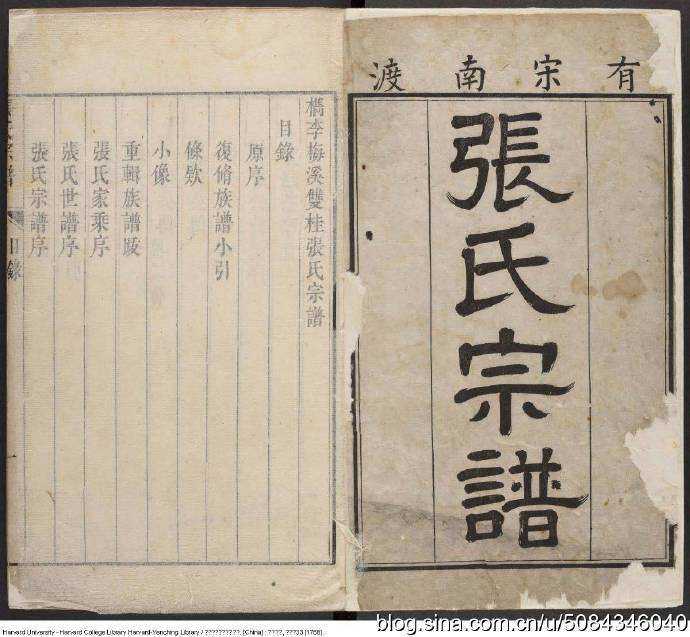 有宋南渡
張氏宗譜
檇李梅溪雙桂張氏宗譜
目錄
原序
復脩族譜小引
條欵
小像
重輯族譜跋
張氏家乘序
張氏世譜序
張氏宗譜序
目錄
Harvard University - Harvard College Library Harvard-Yenching Library / ??????????. [China] : ????, ???33 [1768].
blog.sina.com.cn/u/5084346040